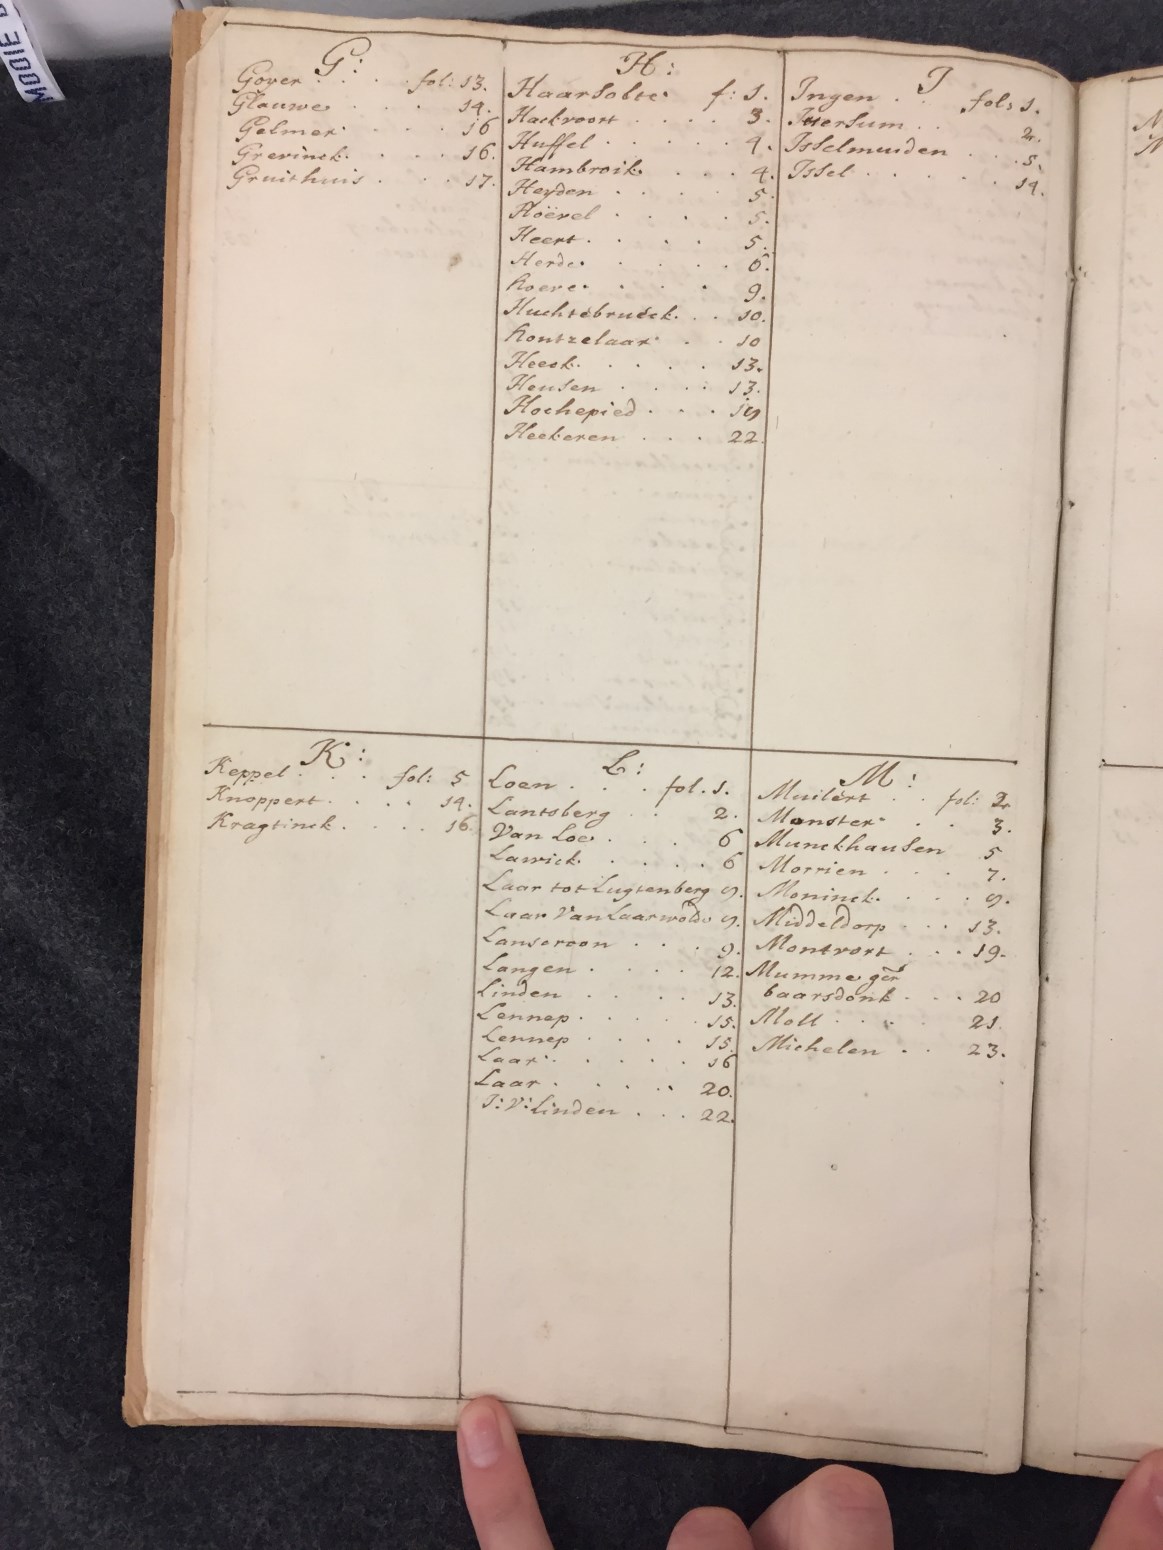 MOOIE B
G:
Gover . . . . fol: 13.
Glauwe . . . 14.
Gelmer . . . . 16
Grevinck . . . . 16.
Gruithuis . . . 17.
H:
Haarsolte f: 1.
Hackvoort . . . . 3.
Huffel . . . . . . 4.
Hambroik . . . 4.
Heyden . . . . 5.
Hoëvel . . . . 5.
Heert . . . . 5.
Herde . . . . . 6.
hoeve . . . . 9.
Huchtebruéck . . . 10.
hontzelaar . . 10
Heeck . . . . . 13.
Housen . . . . 13.
Hochepied . . . 19
Heekeren . . . 22.
I
Ingen . . fol: 1.
Ittersum . . 2.
Isselmuiden . . . 5
Issel . . . . . . 14.
K:
Keppel . . . fol: 5
Knoppert . . . . 14.
Kragtinck . . . . 16.
L:
Loen . . . fol. 1.
Lantsberg . . 2.
Van Loe . . . 6
Lawick . . . . 6
Laar tot Lugtenberg 9.
Laar Van Laarwolde 9.
Lanscroon . . . 9.
Langen . . . . 12.
Linden . . . . 13.
Lennep . . . . . 15.
Lennep . . . . 15.
Laar . . . . . 16
Laar . . . . . 20.
J: V: Linden . . . 22.
M:
Muilért . . fol: 2.
Monster . . 3.
Munckhausen 5
Morrien . . . 7.
Moninck . . . 9.
Middeldorp . . . 13.
Montvort . . . 19.
Mumme gen̄
baarsdonk . . . 20
Moll . . . . 21.
Michelen . . 23.
N
N